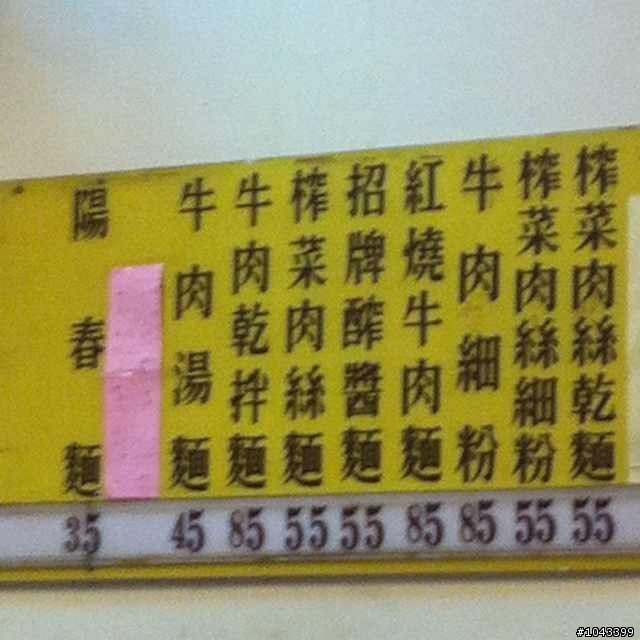 榨菜肉絲乾麵 55
榨菜肉絲細粉 55
牛肉細粉 85
紅燒牛肉麵 85
招牌醡醬麵 55
榨菜肉絲麵 55
牛肉乾拌麵 85
牛肉湯麵 45
陽春麵 35
#1043399